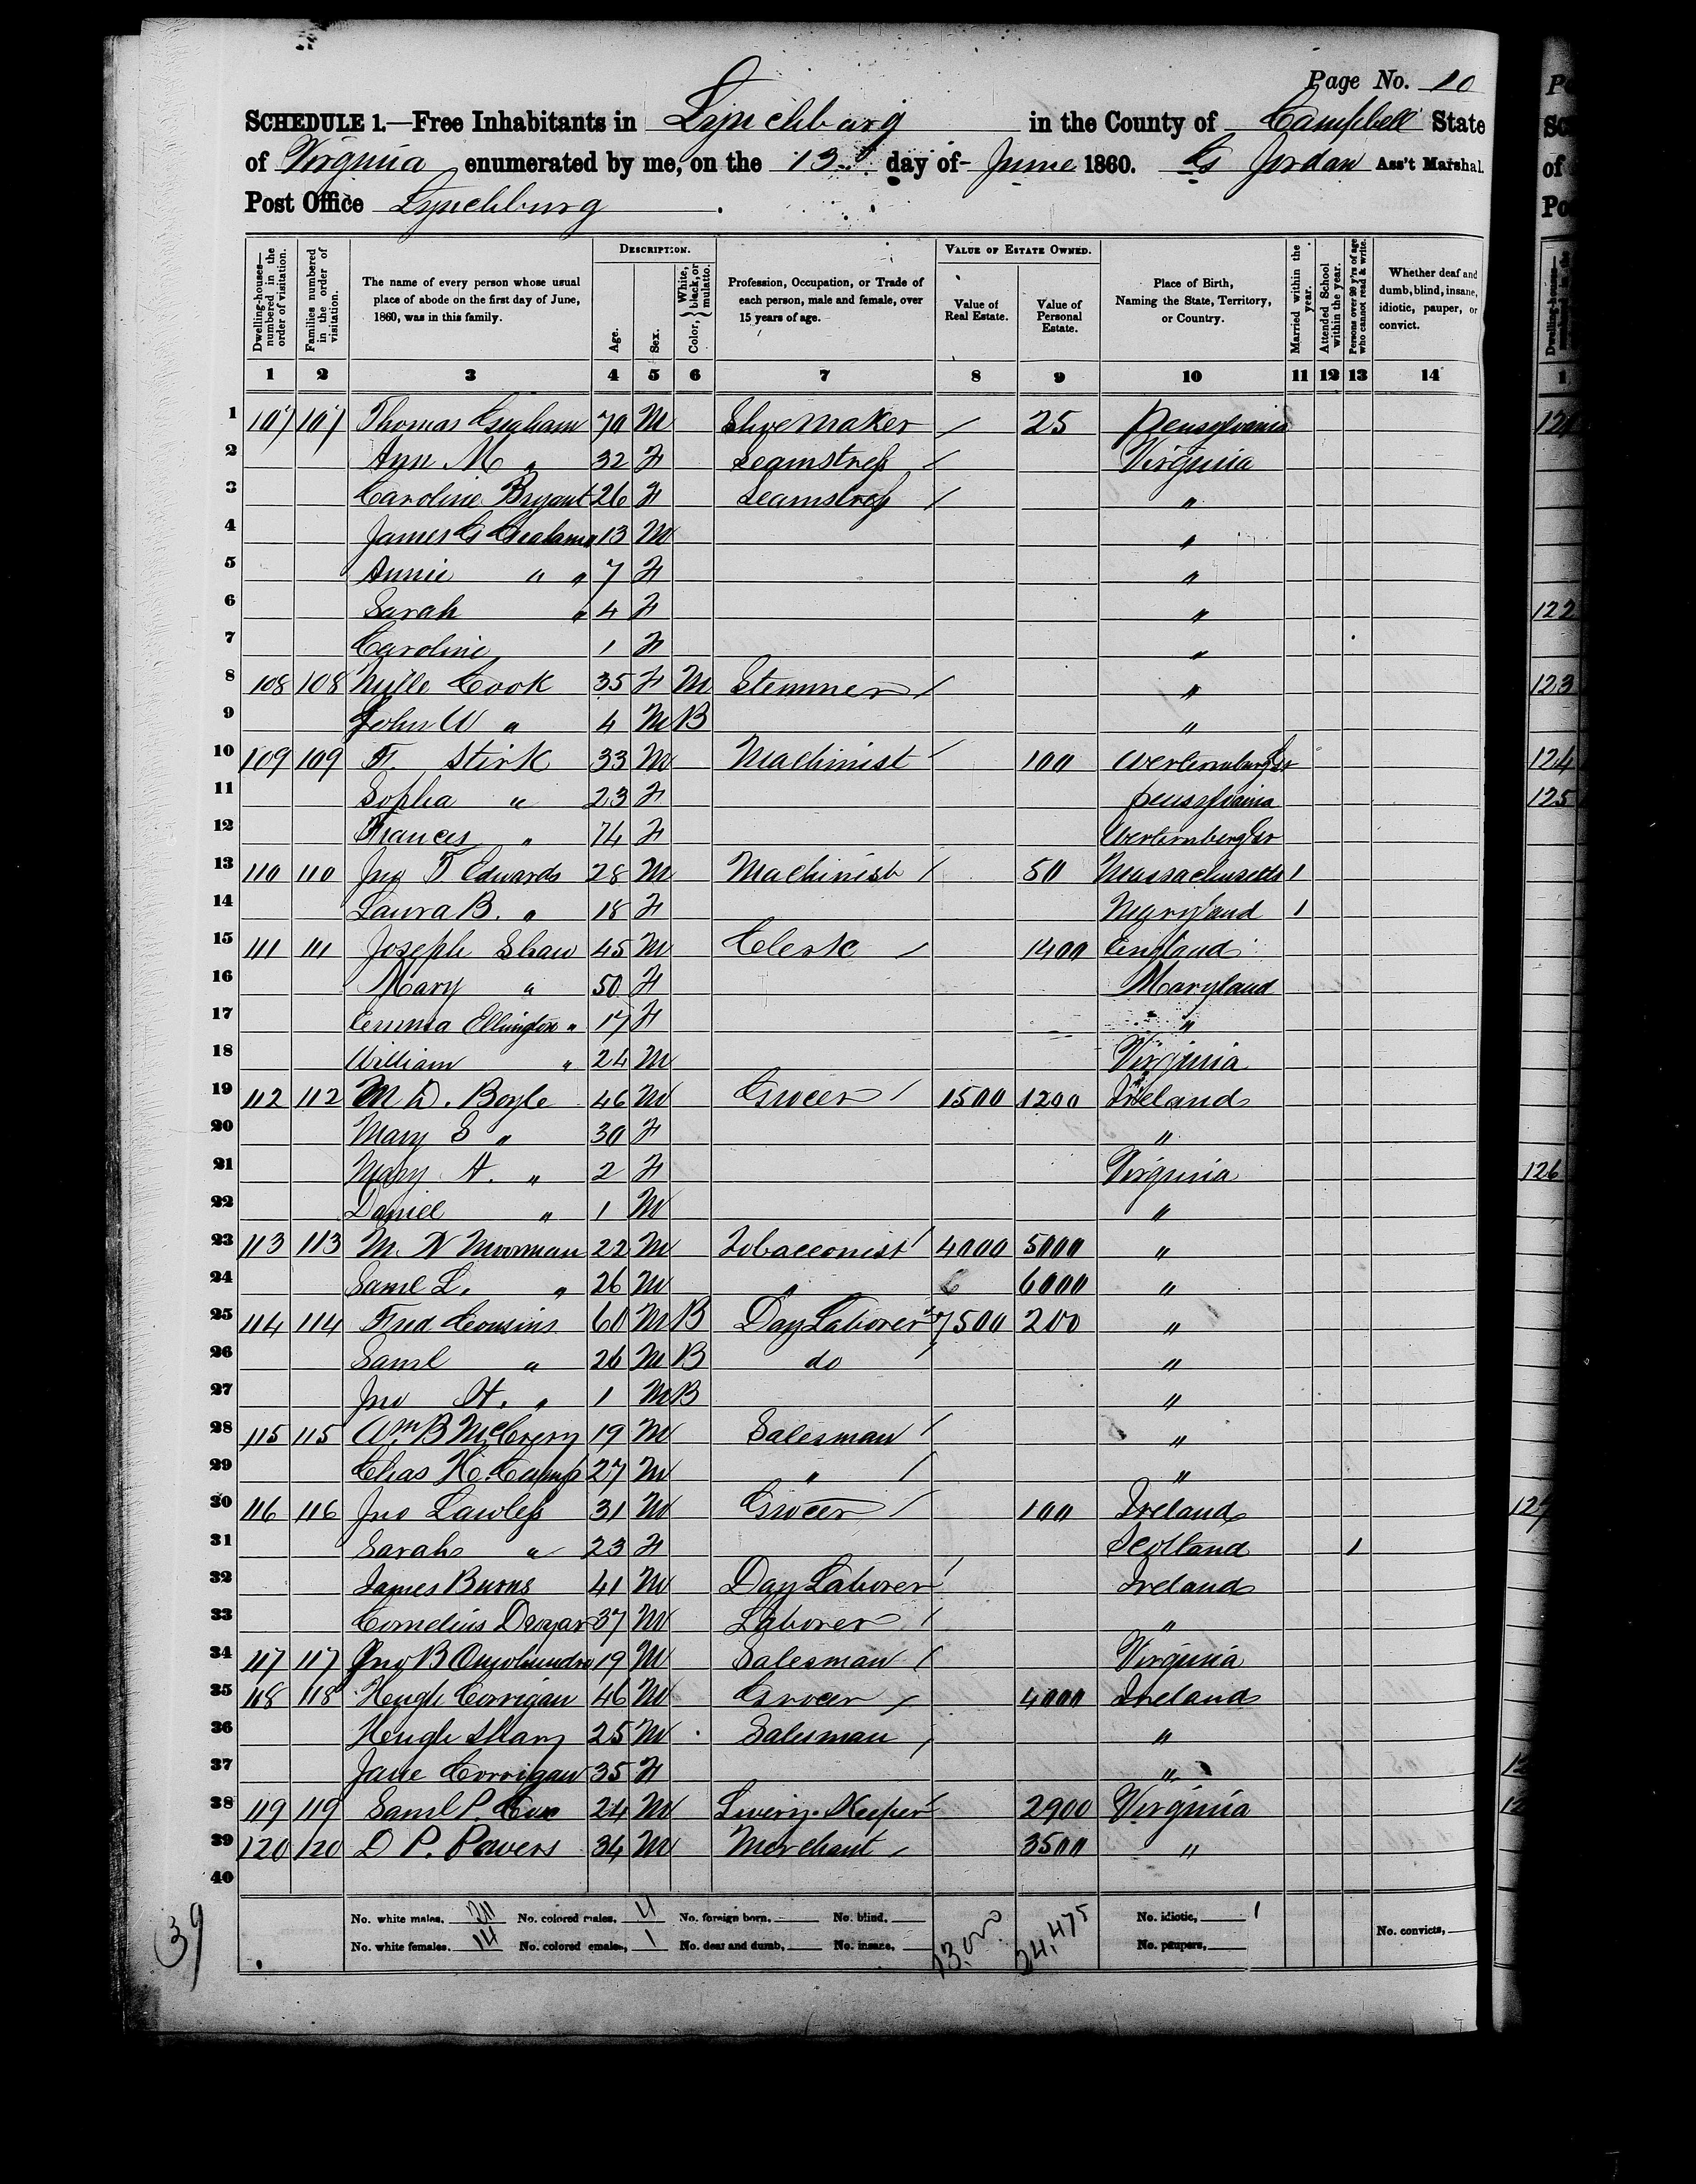 Page No. 10
SCHEDULE 1.—Free Inhabitants in Lynchburg in the County of Campbell State
of Virginia enumerated by me, on the 13 day of June 1860. G Jordan Ass't Marshal.
Post Office Lynchburg
DESCRIPTION. VALUE OF ESTATE OWNED.
Dwelling-houses—numbered in the order of visitation. Families numbered in the order of visitation. The name of every person whose usual place of abode on the first day of June, 1860, was in this family. Age. Sex. Color, { White, black, or mulatto. Profession, Occupation, or Trade of each person, male and female, over 15 years of age. Value of Real Estate. Value of Personal Estate. Place of Birth, Naming the State, Territory, or Country. Married within the year. Attended School within the year. Persons over 20 y'rs of age who cannot read & write. Whether deaf and dumb, blind, insane, idiotic, pauper, or convict.
1 2 3 4 5 6 7 8 9 10 11 12 13 14
1 107 107 Thomas Graham 70 M Shoe Maker / 25 Pensylvania
2 Ann M " 32 F Seamstress / Virginia
3 Caroline Bryant 26 F Seamstress / "
4 James G Graham 13 M "
5 Annie " " 7 F "
6 Sarah " 4 F "
7 Caroline 1 F "
8 108 108 Cook 35 F M Stemmer / "
9 John W " 4 M B "
10 109 109 F. Stirk 33 M Machinist / 100
11 Sophia " 23 F Pensylvania
12 Frances " 74 F
13 110 110 Jno T Edwards 28 M Machinist / 50 Massachusetts 1
14 Laura B. " 18 F Maryland 1
15 111 111 Joseph Shaw 45 M Clerk / 1400 England
16 Mary " 50 F Maryland
17 Emma Ellington " 17 F "
18 William " 24 M Virginia
19 112 112 M D. Boyle 46 M Grocer / 1500 1200 Ireland
20 Mary S " 30 F "
21 Mary A. " 2 F Virginia
22 Daniel " 1 M "
23 113 113 M. W Moorman 22 M Tobacconist / 4000 5000 "
24 Saml L. " 26 M " 6000 "
25 114 114 Fred Cousins 60 M B Day Laborer 7500 200 "
26 Saml " 26 M B do / "
27 Jno H. " 1 M B "
28 115 115 Wm B McCrery 19 M Salesman / "
29 Chas H. Camp 27 M " / "
30 116 116 Jno Lawless 31 M Grocer / 100 Ireland
31 Sarah " 23 F Scotland 1
32 James Burns 41 M Day Laborer / Ireland
33 Cornelius 37 M Laborer / "
34 117 117 Jno B 19 M Salesman / Virginia
35 118 118 Hugh Corrigan 46 M Grocer / 4000 Ireland
36 Hugh 25 M Salesman / "
37 Jane Corrigan 35 F "
38 119 119 Saml P. 24 M Livery-Keeper / 2900 Virginia
39 120 120 D P. Powers 34 M Merchant / 3500 "
40
No. white males, 20 No. colored males, 4 No. foreign born, No. blind, No. idiotic, 1
No. white females, 14 No. colored emales, 1 No. deaf and dumb, No. insane, 13.000 24,475 No. paupers, No. convicts,
39
122
123
124
125
126